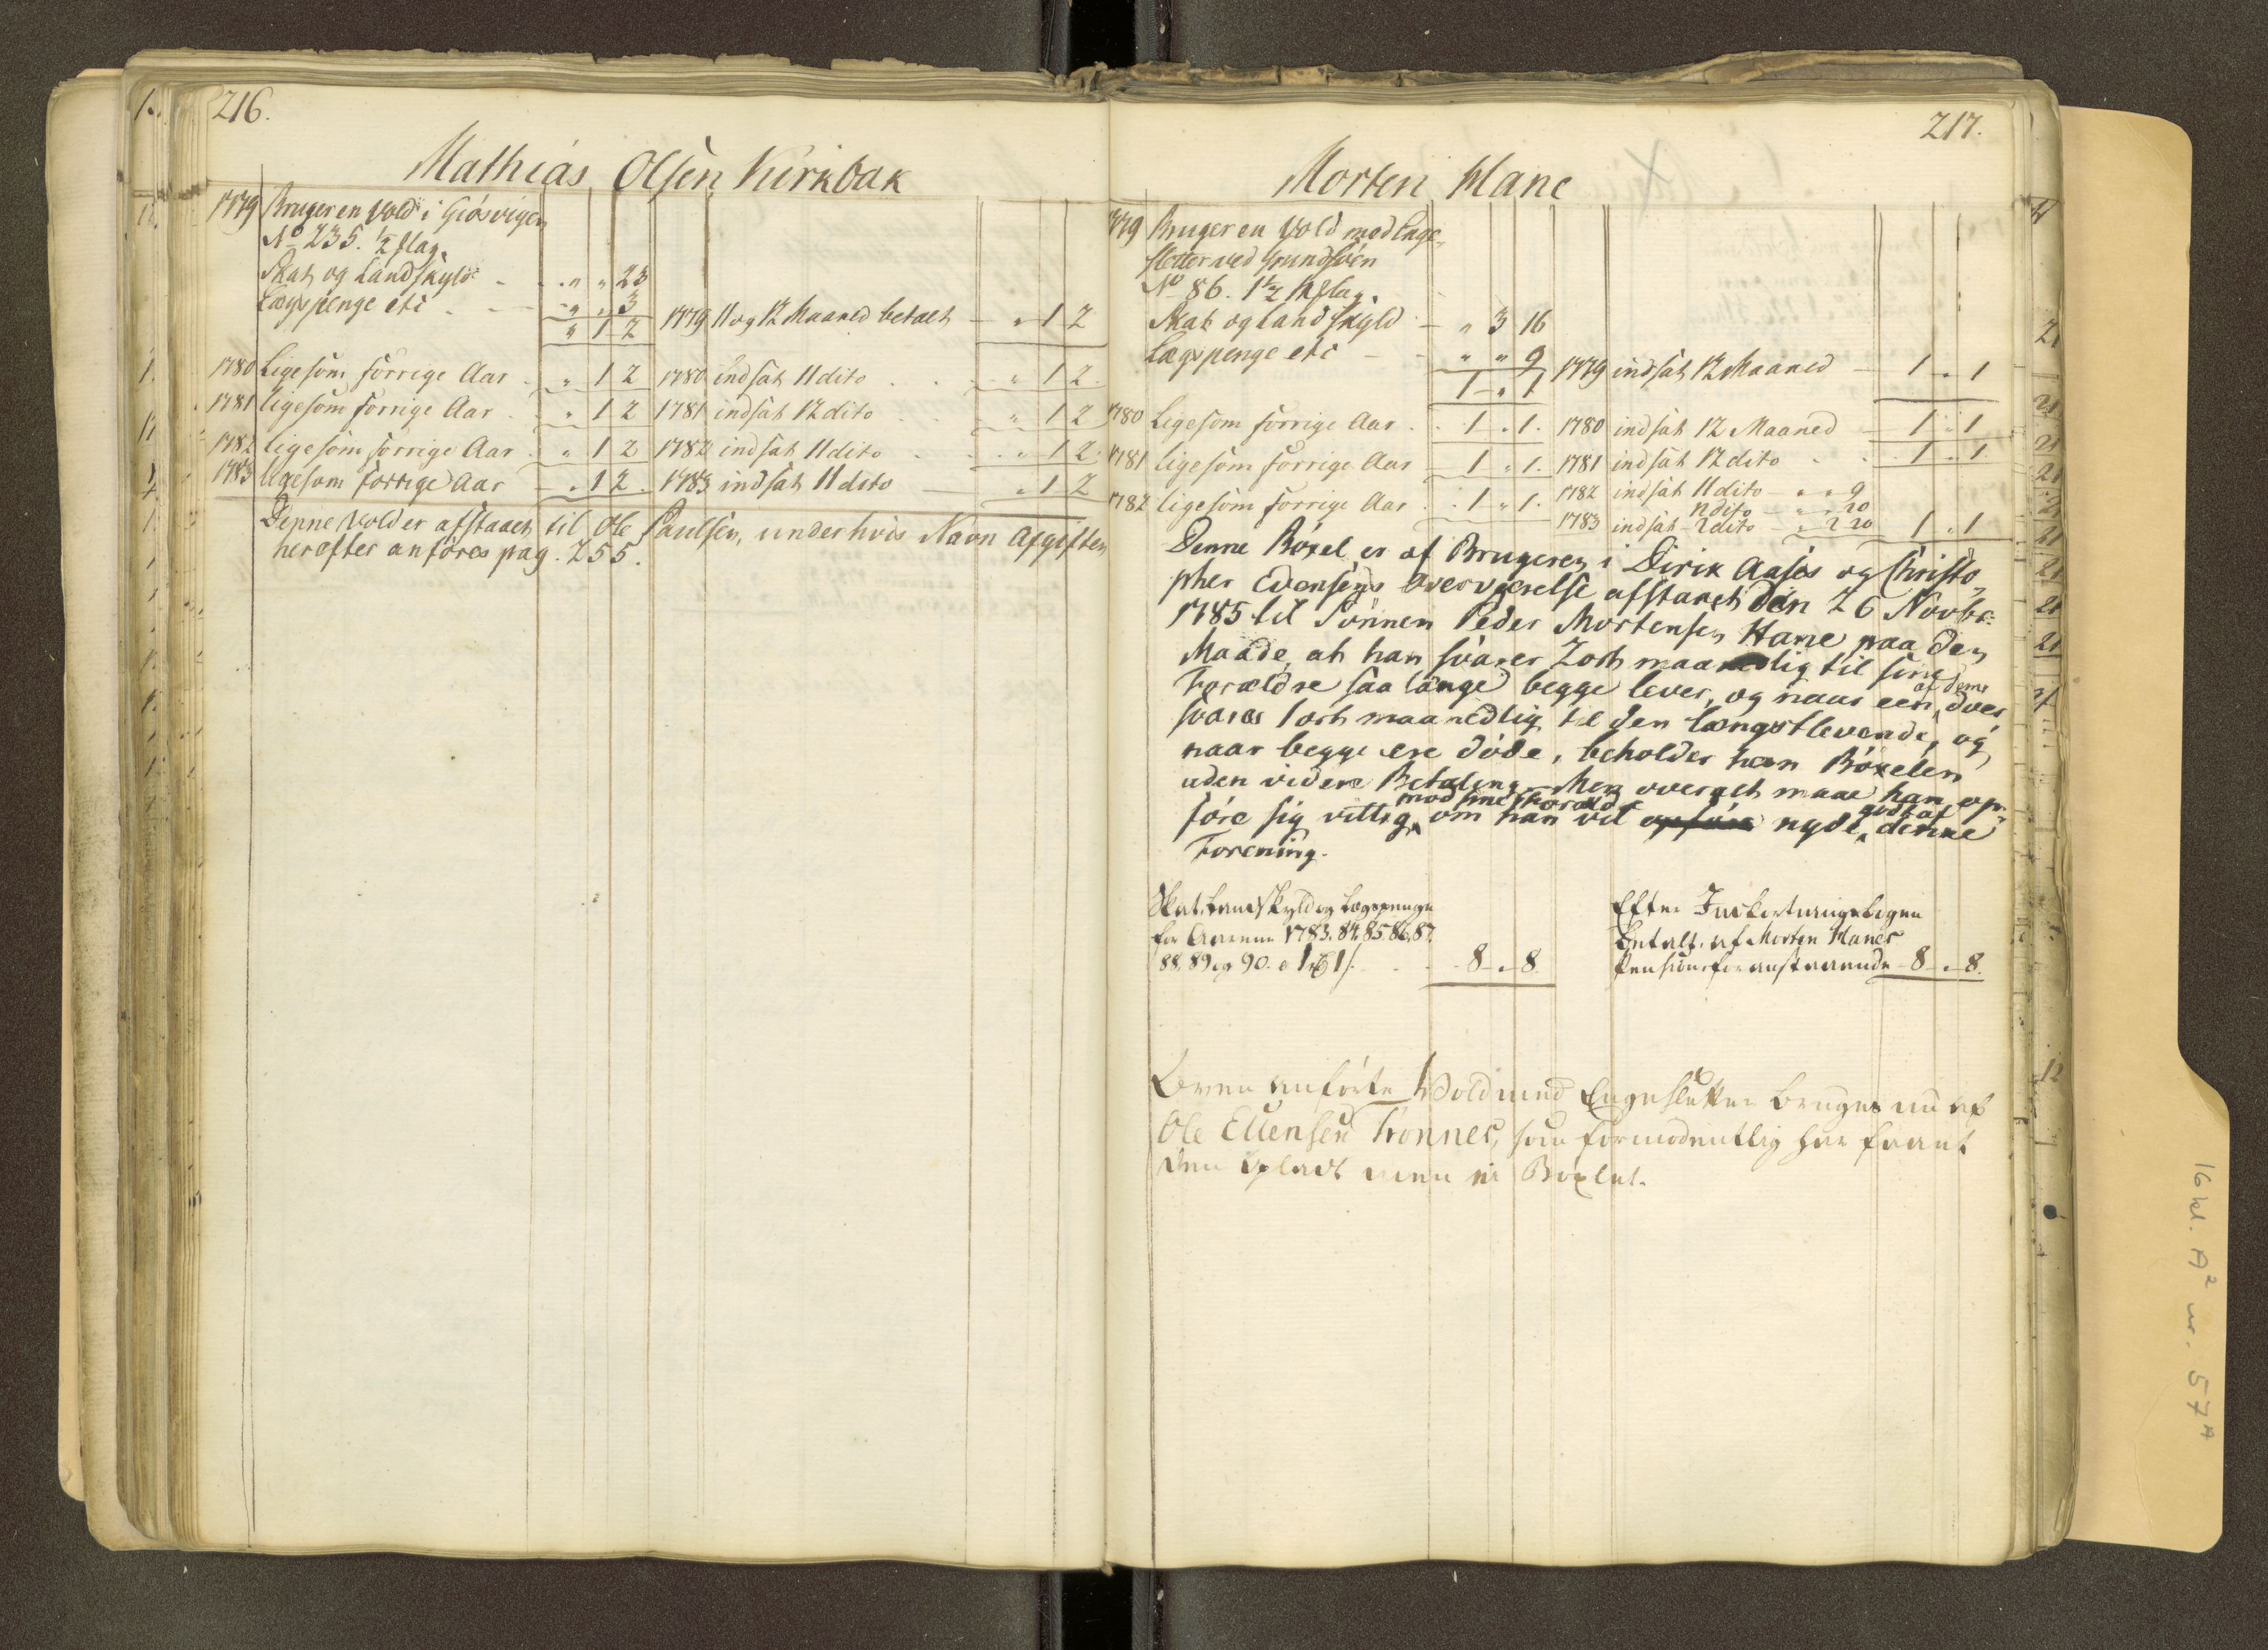 216.
Mathias Olsen Kirkbak
1779 Bruger en Vold i Giösvigen
No 235. 1/2 flag.
Skat og Landskyld - - " " 23
Lægspenge etc - - " " 3
" 1 2 1779 11 og 12 Maaned betalt - " 1 2
1780 Ligesom forrige Aar - " 1 2 1780 indsat 11 dito - " 1 2.
1781 ligesom forrige Aar - " 1 2 1781 indsat 12 dito - " 1 2
1782 ligesom forrige Aar - " 1 2 1782 indsat 11 dito - " 1 2.
1783 ligesom forrige Aar - " 1 2. 1783 indsat 11 dito - " 1 2
Denne Vold er afstaaet til Ole Paulsen, under hvis Navn Afgiften
herefter anföres pag. 255.
217.
Morten Hane
1779 Bruger en Vold med Enge-
sletter ved Grundsöen
No 86. 1 1/2 flag.
Skat og Landskyld - " 3 16
Lægspenge etc - - " " 9
1 " 1 1779 indsat 12 Maaned - 1 " 1
1780 Ligesom forrige Aar - 1 " 1. 1780 indsat 12 Maaned - 1 " 1
1781 ligesom forrige Aar - 1 " 1. 1781 indsat 12 dito - 1 " 1
1782 ligesom forrige Aar - 1 " 1. 1782 indsat 11 dito - " " 9
12 dito - " " 20
1783 indsat 2 dito - " 2 20 1 " 1
Denne Böxel er af Brugeren i Dirik Aases og Christo-
pher Evensens Overværelse afstaaet den 26 Novbr.
1785 til Sönnen Peder Mortensen Hane paa den
Maade, at han svarer 2 ort maanedlig til sine
Forældre saa længe begge lever, og naar een af dem döer
svarer 1 ort maanedlig til den længstlevende, og
naar begge ere döde, beholder han Böxelen
uden videre Betaling. Men overalt maae han op-
före sig villig mod sine Forældre om han vil nyde godt af denne
Forening.
Skat, Landskyld og Lægspenge
for Aarene 1783. 84. 85. 86. 87.
88. 89 og 90. a 1 rd 1 s. - 8 " 8
Efter Inkorteringsbogen
betalt af Morten Hanes
Pension for anstaaende 8 " 8.
Oven anförte Vold med Engesletter bruges nu af
Ole Ellensen Trönnes, som formodentlig har faaet
den opladt men ei Böxlet.
16 kl. A2 nr. 57A